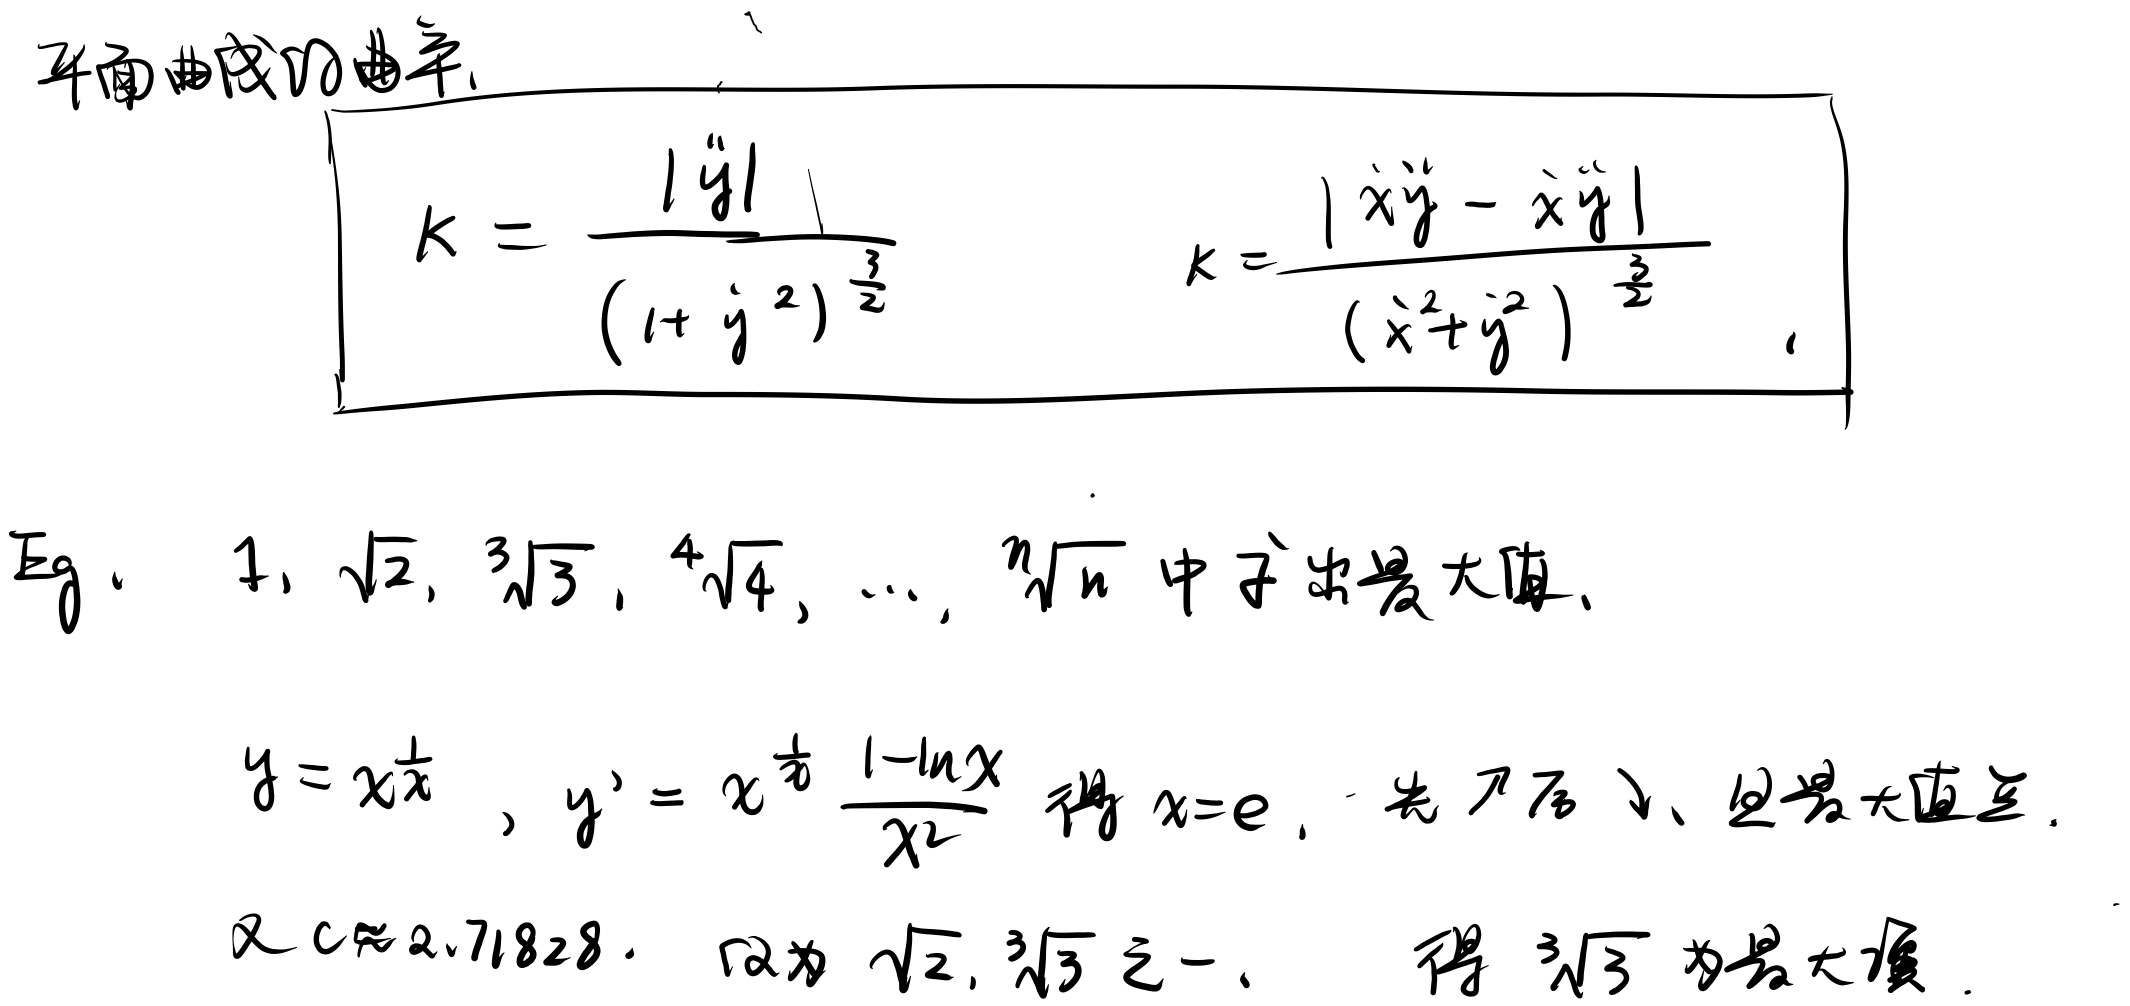 平面曲线的曲率.
K = |ÿ| / (1+ẏ²)^(3/2)    K = |ẋÿ - ẋÿ| / (ẋ²+ẏ²)^(3/2).
Eg. 1, √2, ³√3, ⁴√4, …, ⁿ√n 中求出最大值.
y = x^(1/x), y' = x^(1/x) (1-lnx)/x² 得 x=e. 先↗后↘、且最大值点.
又 e≈2.71828. 仅为 √2, ³√3 之一. 得 ³√3 为最大值.